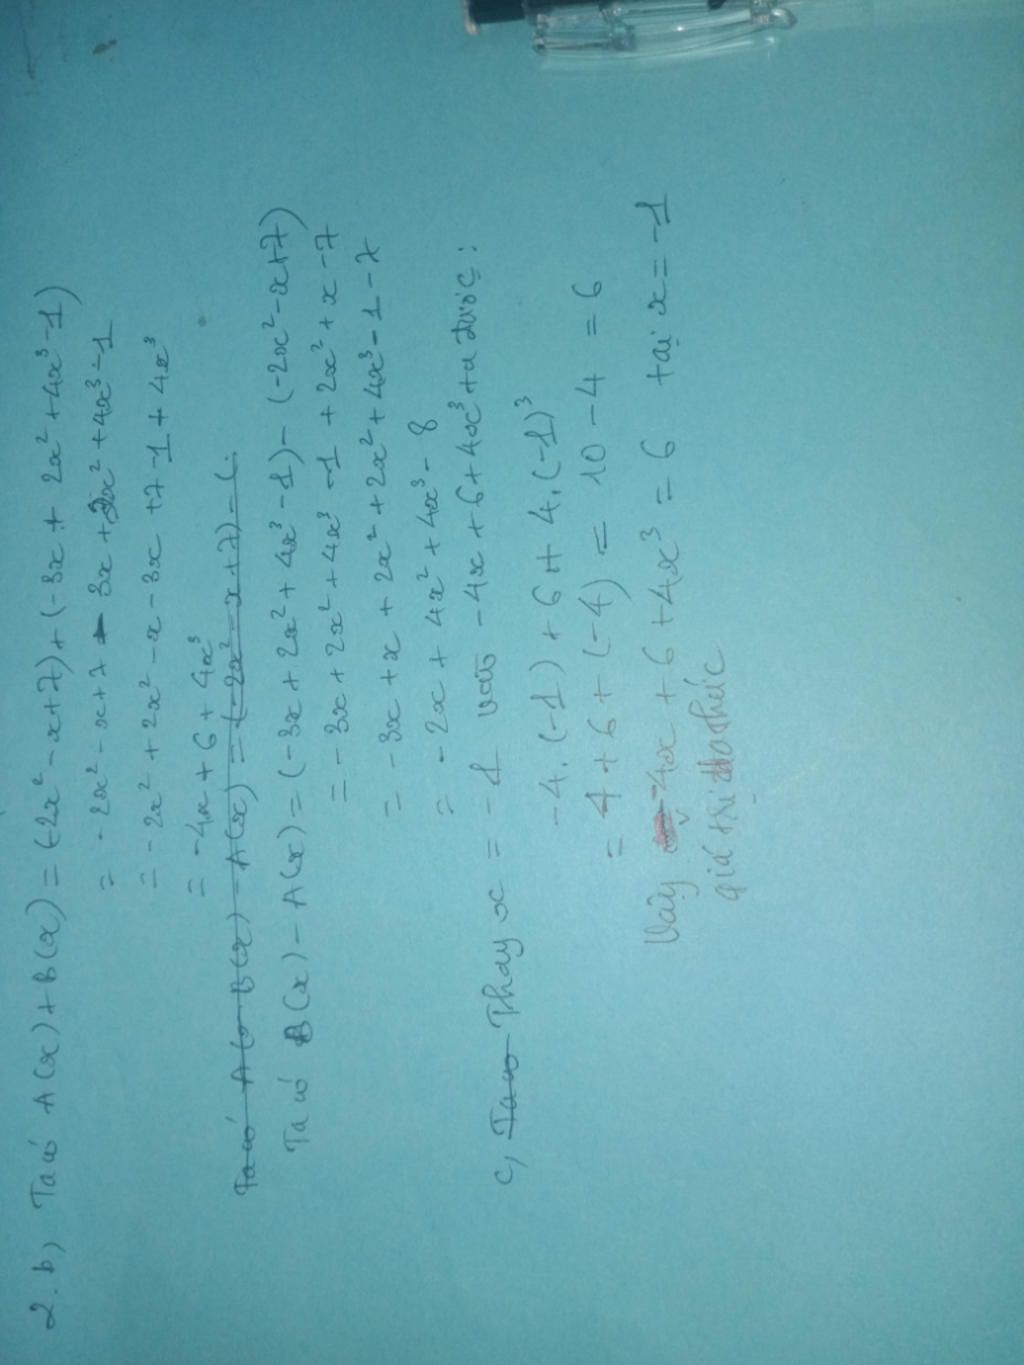 2.b, Ta có A(x) + B(x) = (-2x² - x + 7) + (-3x + 2x² + 4x³ - 1)
= -2x² - x + 7 - 3x + 2x² + 4x³ - 1
= -2x² + 2x² - x - 3x + 7 - 1 + 4x³
= -4x + 6 + 4x³
Ta có B(x) - A(x) = (-3x + 2x² + 4x³ - 1) - (-2x² - x + 7)
= -3x + 2x² + 4x³ - 1 + 2x² + x - 7
= -3x + x + 2x² + 2x² + 4x³ - 1 - 7
= -2x + 4x² + 4x³ - 8
c, Thay x = -1 vào -4x + 6 + 4x³ ta được:
-4.(-1) + 6 + 4.(-1)³
= 4 + 6 + (-4) = 10 - 4 = 6
Vậy -4x + 6 + 4x³ = 6 tại x = -1
giá trị đa thức